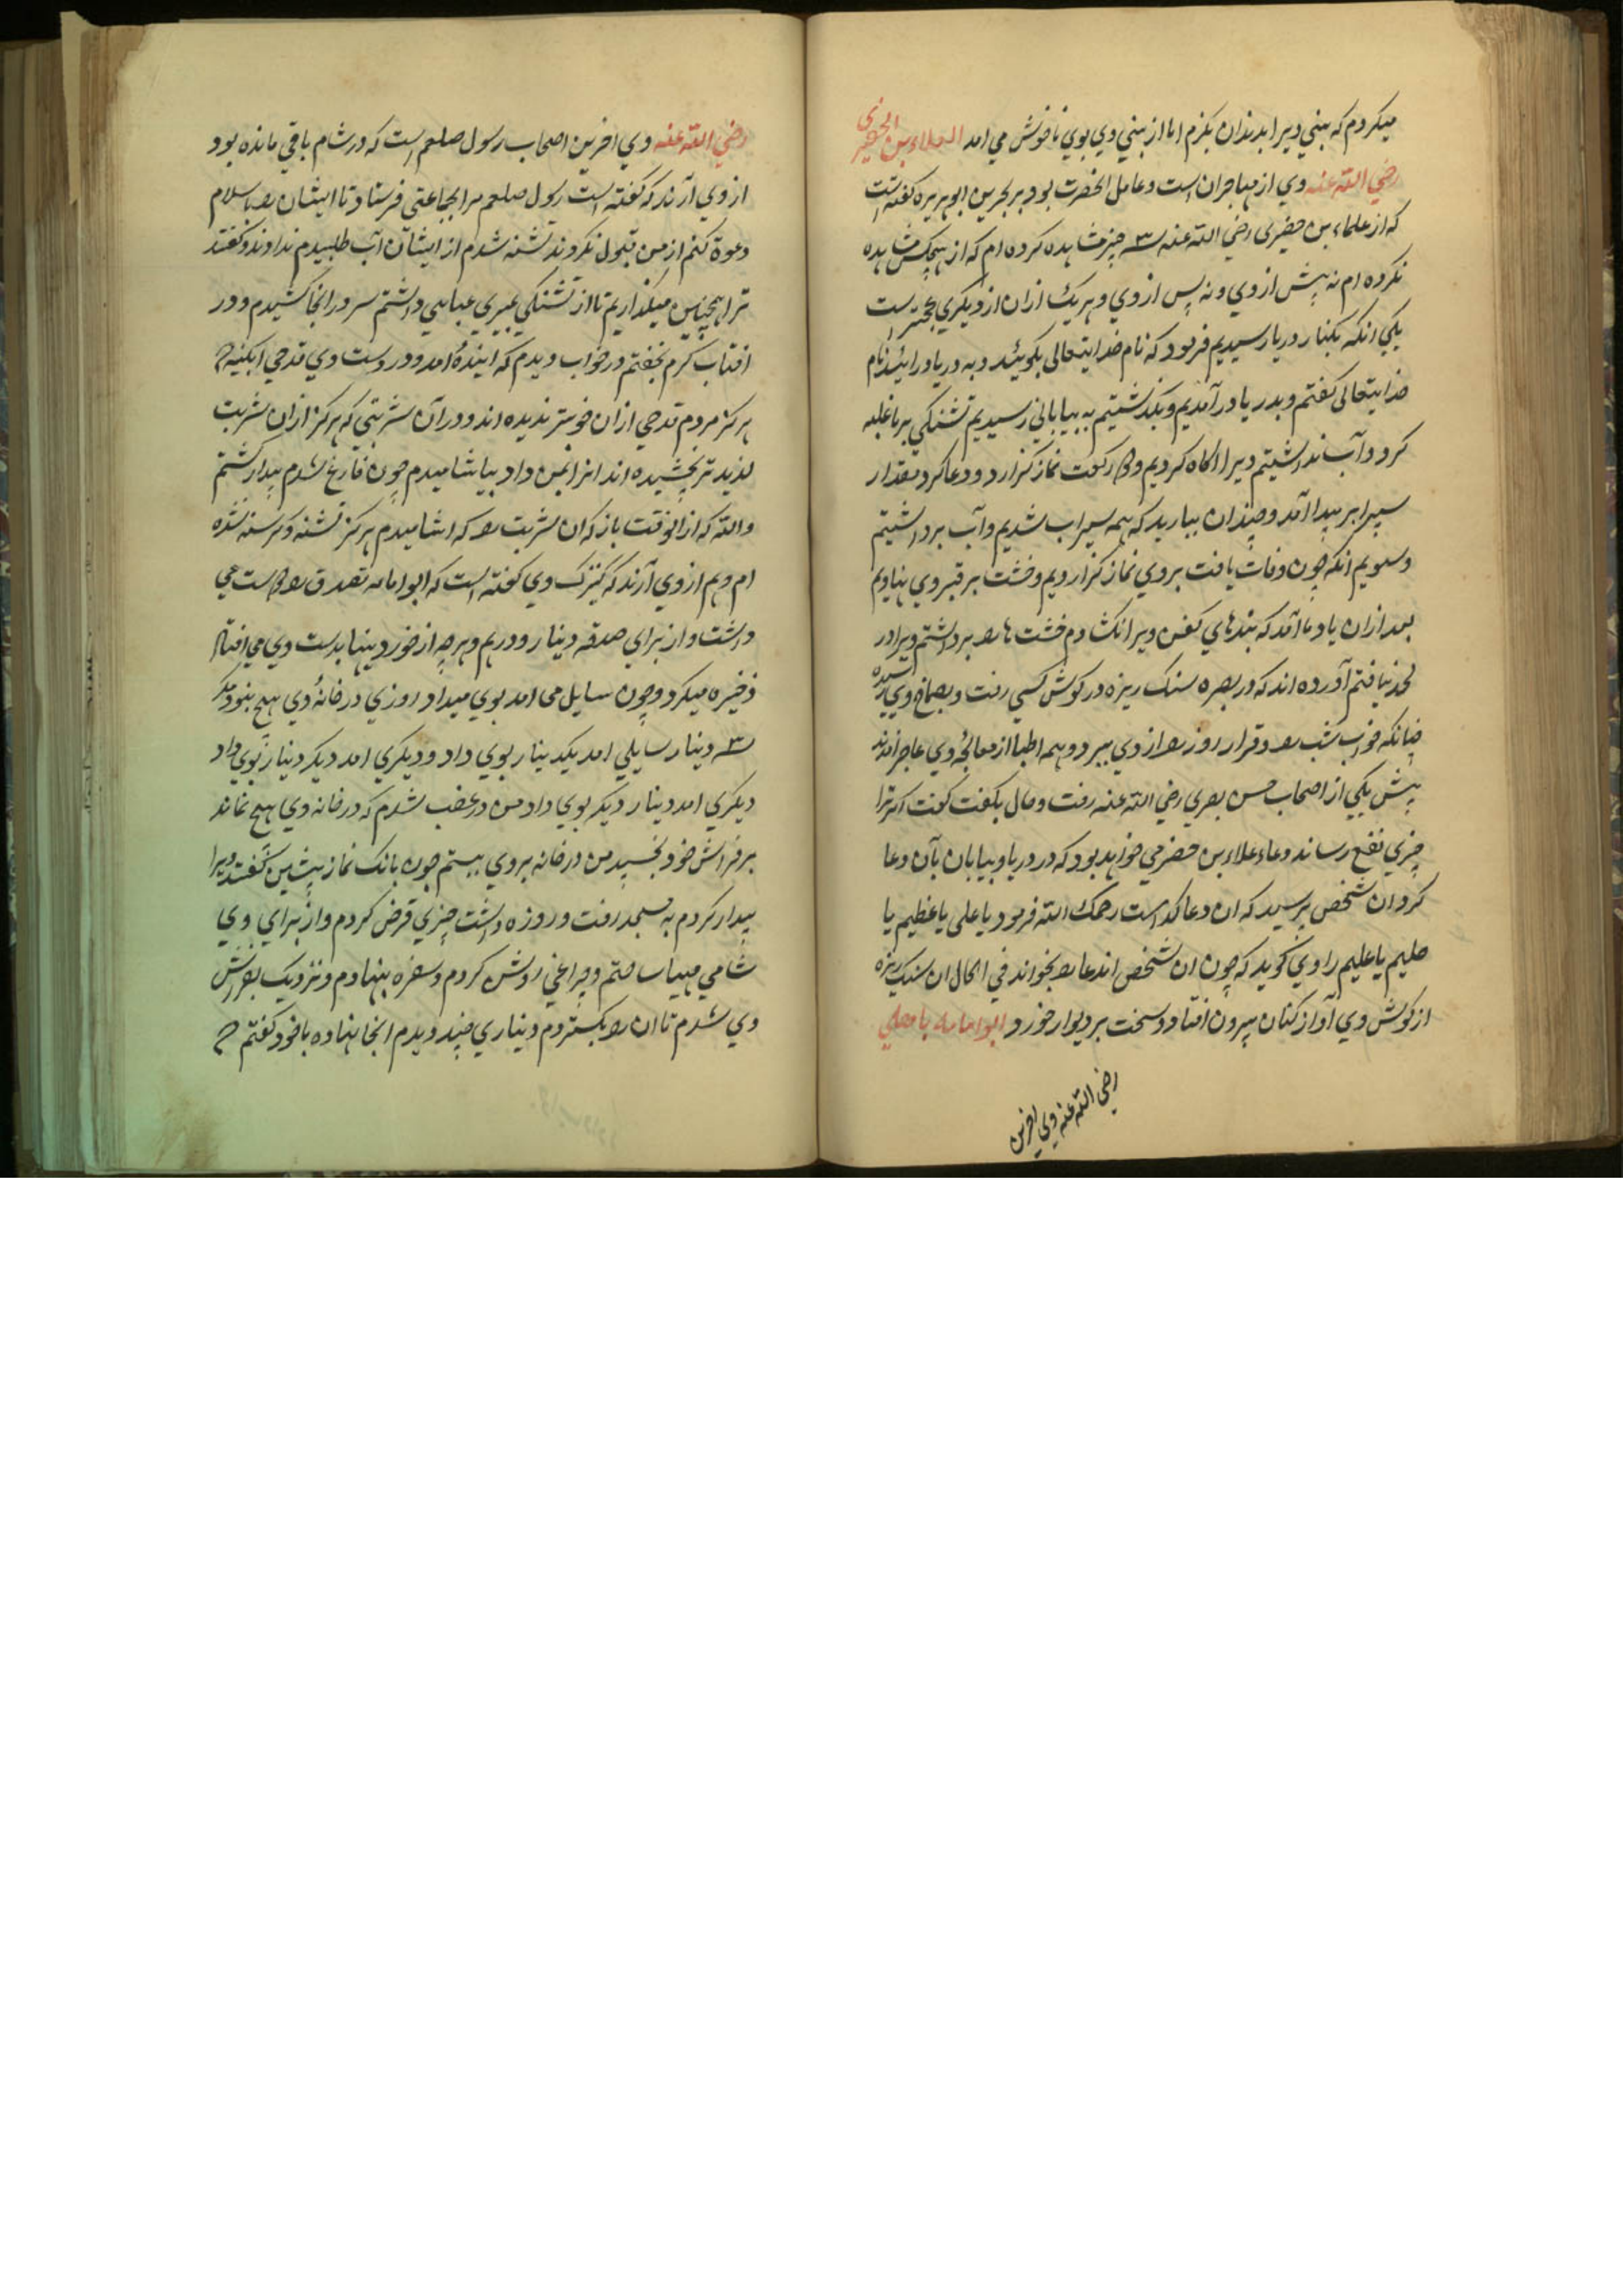 میکردم که بینی ویرا بدندان بکزم اما از بینی وی بوی ناخوش می امد العلاء بن الحضرمی
رضی الله عنه وی از مهاجران است و عامل انحضرت بود بر بحرین ابو هریره کفته است
که از علاء بن حضرمی رضی الله عنه سه چیز مشاهده کرده ام که از هیچکس مشاهده
نکرده ام نه پیش از وی و نه پس از وی و هر یک ازان از دیکری عجبتر است
یکی انکه بکنار دریا رسیدیم فرمود که نام خدایتعالی بکوئید و به دریا درائید نام
خدایتعالی کفتم و بدریا درآمدیم و بکذشتیم به بیابانی رسیدیم تشنکی بر ما غلبه
کرد و آب نداشتیم ویرا اکاه کردیم دو رکعت نماز کزارد و دعا کرد بمقدار
سپر ابر پیدا آمد و چندان ببارید که همه سیراب شدیم و آب برداشتیم
و سویم انکه چون وفات یافت بروی نماز کزاردیم و خشت بر قبر وی نهادیم
بعد ازان یاد ما آمد که بندهای کفن ویرا نکشادم خشت ها را برداشتم ویرا در
لحد نیافتم آورده اند که در بصره سنک ریزه در کوش کسی رفت و بصماخ وی رسیده
چنانکه خواب شب را و قرار روز را از وی ببرد و همه اطبا از معالجهٔ وی عاجز آمدند
پیش یکی از اصحاب حسن بصری رضی الله عنه رفت و حال بکفت کفت اکر ترا
چیزی نفع رساند دعاء علاء بن حضرمی خواهد بود که در دریا و بیابان بآن دعا
کرد ان شخص پرسید که ان دعا کدام است رحمک الله فرمود یا علی یا عظیم یا
حلیم یا علیم راوی کوید که چون ان شخص اندعا را بخواند فی الحال ان سنک ریزه
از کوش وی آواز کنان بیرون افتاد و سخت بر دیوار خورد ابو امامه باهلی
رضی الله عنه وی اخرین
رضی الله عنه وی اخرین اصحاب رسول صلعم است که در شام باقی مانده بود
از وی آرند که کفته است رسول صلعم مرا بجماعتی فرستاد تا ایشان را باسلام
دعوة کنم از من قبول نکردند تشنه شدم از ایشان آب طلبیدم ندادند و کفتند
ترا همچنین میکذاریم تا از تشنکی بمیری عبایی داشتم سر درانجا کشیدم و در
افتاب کرم بخفتم در خواب دیدم که ایندهٔ امد و در دست وی قدحی ابکینه که
هرکز مردم قدحی ازان خوبتر ندیده اند و دران شربتی که هرکز ازان شربت
لذیذ تر نچشیده اند انرا بمن داد بیاشامیدم چون فارغ شدم بیدار کشتم
والله که از انوقت باز که ان شربت را که اشامیدم هرکز تشنه و کرسنه نشده
ام و هم از وی آرند که کنیزک وی کفته است که ابو امامه تصدق را دوست می
داشت و از برای صدقه دینار و درهم و هر چه از خوردینها بدست وی می افتاد
ذخیره میکرد و چون سایل می امد بوی میداد روزی در خانهٔ وی هیچ نبود مکر
سه دینار سایلی امد یکدینار بوی داد و دیکری امد دیکر دینار بوی داد
دیکری امد دینار دیکر بوی داد من در غضب شدم که در خانه وی هیچ نماند
بر فراش خود بخسپید من در خانه بروی ببستم چون بانک نماز پیشین کفتند ویرا
بیدار کردم به مسجد رفت و روزه داشت چیزی قرض کردم و از برای وی
شامی مهیا ساختم و چراغی روشن کردم و سفره بنهادم و نزدیک بفراش
وی شدم تا ان را بکستردم دیناری چند دیدم انجا نهاده با خود کفتم که